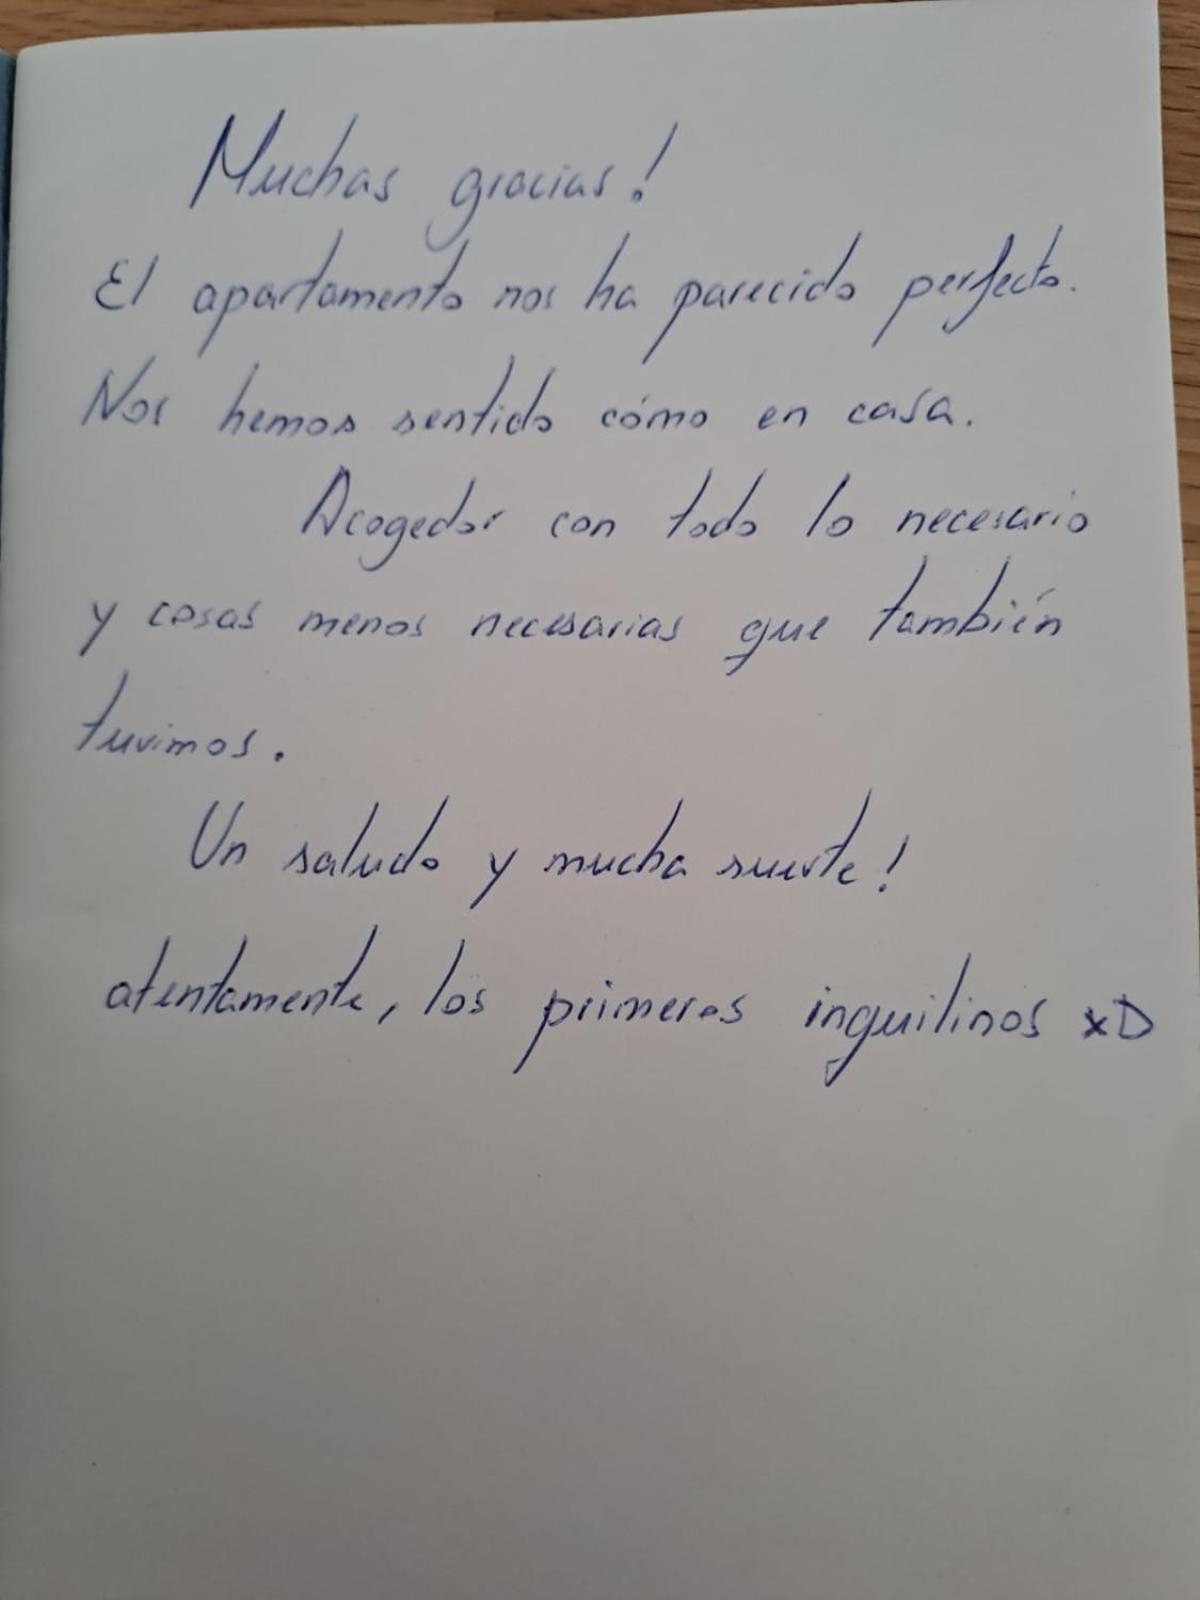 Muchas gracias!
El apartamento nos ha parecido perfecto.
Nos hemos sentido cómo en casa.
Acogedor con todo lo necesario
y cosas menos necesarias que también
tuvimos.
Un saludo y mucha suerte!
atentamente, los primeros inquilinos xD